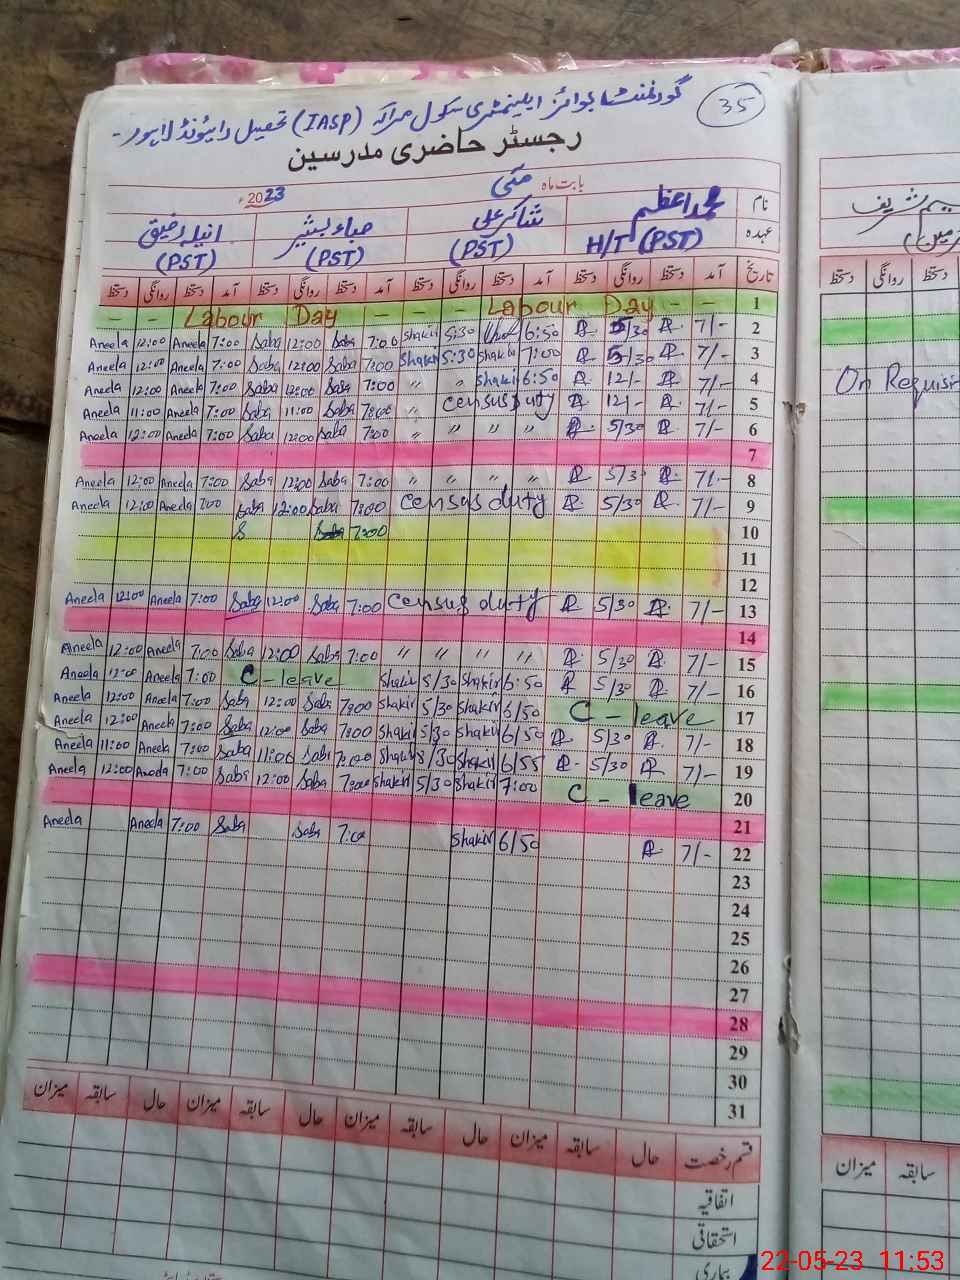 35
گورنمنٹ بوائز ایلیمنٹری سکول مراکہ (IASP) تحصیل رائیونڈ لاہور-
رجسٹر حاضری مدرسین
بابت ماہ مئی 2023ء
نام محمد اعظم شاکر علی صباء بشیر انیلہ رفیق
عہدہ H/T (PST) (PST) (PST) (PST)
تاریخ آمد دستخط روانگی دستخط آمد دستخط روانگی دستخط آمد دستخط روانگی دستخط آمد دستخط روانگی دستخط
— — Labour Day — — Labour Day — — 1
Aneela 12:00 Aneela 7:00 Saba 12:00 Saba 7:00 Shakir 5:30 6:50 5/30 7/- 2
Aneela 12:00 Aneela 7:00 Saba 12:00 Saba 7:00 Shakir 5:30 Shakir 7:00 5/30 7/- 3
Aneela 12:00 Aneela 7:00 Saba 12:00 Saba 7:00 " " Shakir 6:50 12/- 7/- 4
Aneela 11:00 Aneela 7:00 Saba 11:00 Saba 7:00 " census duty 12/- 7/- 5
Aneela 12:00 Aneela 7:00 Saba 12:00 Saba 7:00 " " " " 5/30 7/- 6
7
Aneela 12:00 Aneela 7:00 Saba 12:00 Saba 7:00 " " " " 5/30 7/- 8
Aneela 12:00 Aneela 7:00 Saba 12:00 Saba 7:00 census duty 5/30 7/- 9
S Saba 7:00 10
11
12
Aneela 12:00 Aneela 7:00 Saba 12:00 Saba 7:00 census duty 5/30 7/- 13
14
Aneela 12:00 Aneela 7:00 Saba 12:00 Saba 7:00 " " " " 5/30 7/- 15
Aneela 12:00 Aneela 7:00 C - leave Shakir 5/30 Shakir 6:50 5/30 7/- 16
Aneela 12:00 Aneela 7:00 Saba 12:00 Saba 7:00 Shakir 5/30 Shakir 6/50 C - leave 17
Aneela 12:00 Aneela 7:00 Saba 12:00 Saba 7:00 Shakir 5/30 Shakir 6/50 5/30 7/- 18
Aneela 11:00 Aneela 7:00 Saba 11:00 Saba 7:00 Shakir 5/30 Shakir 6/55 5/30 7/- 19
Aneela 12:00 Aneela 7:00 Saba 12:00 Saba 7:00 Shakir 5/30 Shakir 7:00 C - leave 20
21
Aneela Aneela 7:00 Saba Saba 7:00 Shakir 6/50 7/- 22
23
24
25
26
27
28
29
30
31
قسم رخصت حال سابقہ میزان حال سابقہ میزان حال سابقہ میزان حال سابقہ میزان
اتفاقیہ
استحقاقی
بیماری
شریف
دستخط روانگی دستخط
سابقہ میزان
22-05-23 11:53